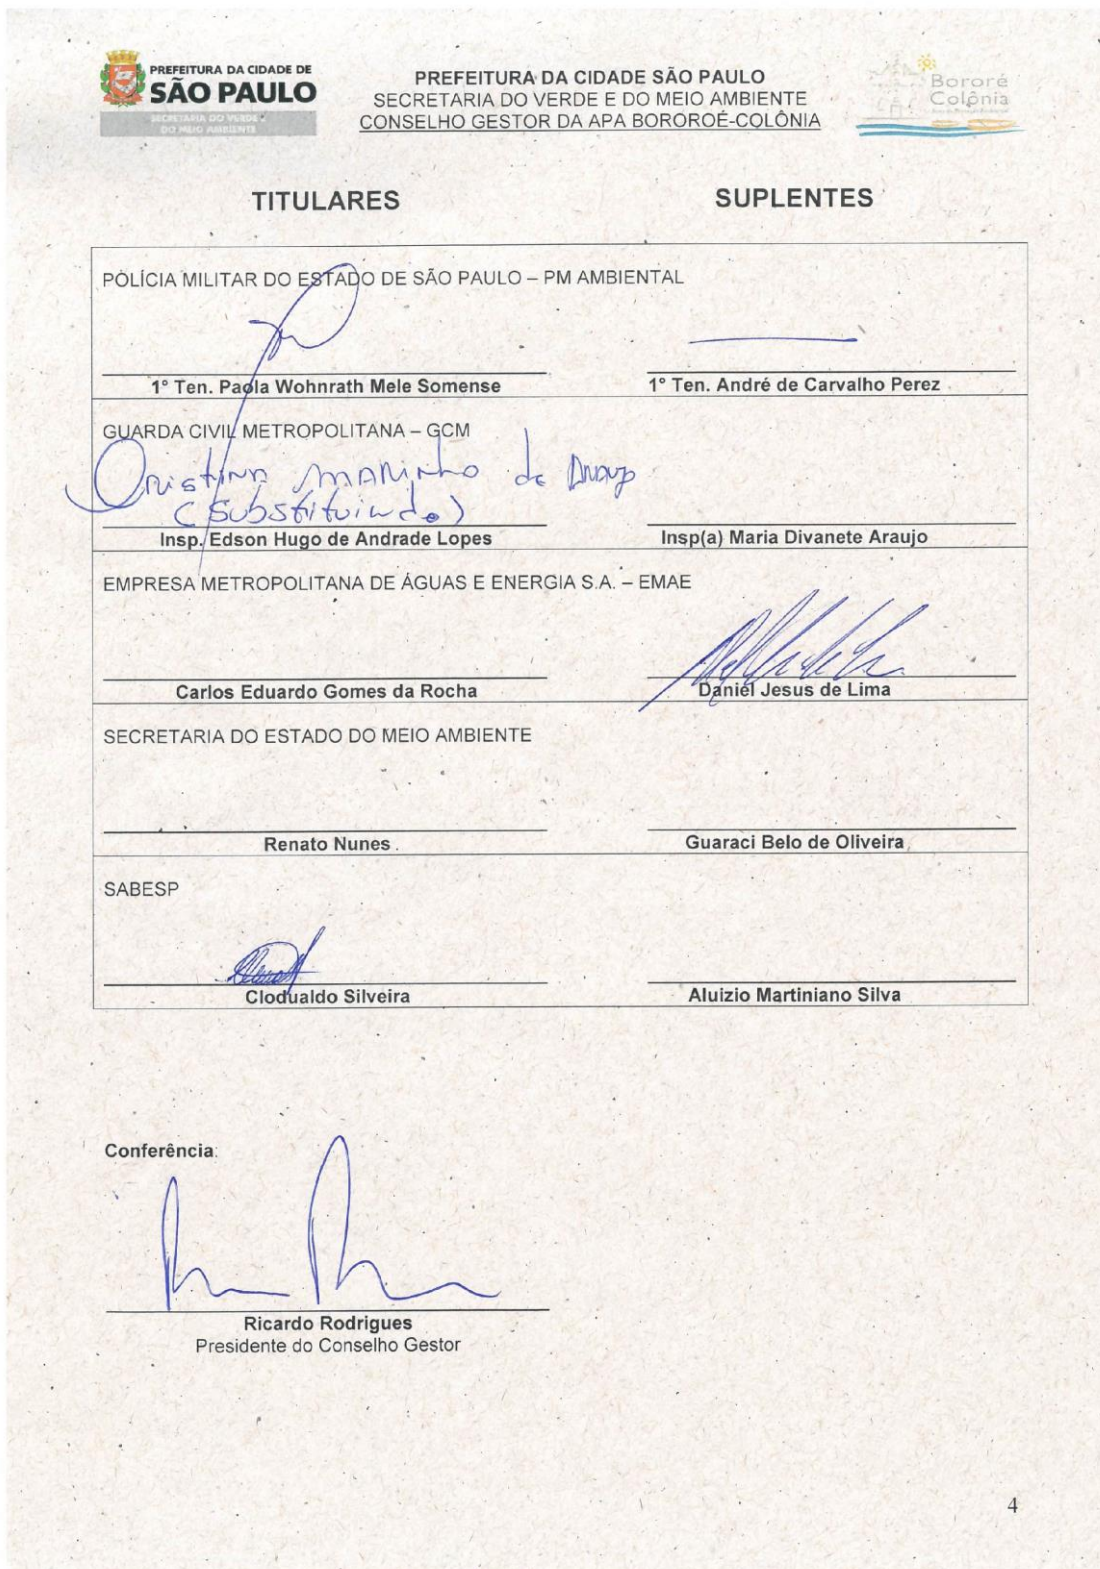 PREFEITURA DA CIDADE DE
SÃO PAULO
SECRETARIA DO VERDE E
DO MEIO AMBIENTE
PREFEITURA DA CIDADE SÃO PAULO
SECRETARIA DO VERDE E DO MEIO AMBIENTE
CONSELHO GESTOR DA APA BOROROÉ-COLÔNIA
Bororé
Colônia
TITULARES
SUPLENTES
POLÍCIA MILITAR DO ESTADO DE SÃO PAULO – PM AMBIENTAL
1º Ten. Paola Wohnrath Mele Somense
1º Ten. André de Carvalho Perez
GUARDA CIVIL METROPOLITANA – GCM
Cristina Marinho de Araujo
(Substituindo)
Insp. Edson Hugo de Andrade Lopes
Insp(a) Maria Divanete Araujo
EMPRESA METROPOLITANA DE ÁGUAS E ENERGIA S.A. – EMAE
Carlos Eduardo Gomes da Rocha
Daniel Jesus de Lima
SECRETARIA DO ESTADO DO MEIO AMBIENTE
Renato Nunes
Guaraci Belo de Oliveira
SABESP
Clodualdo Silveira
Aluizio Martiniano Silva
Conferência:
Ricardo Rodrigues
Presidente do Conselho Gestor
4